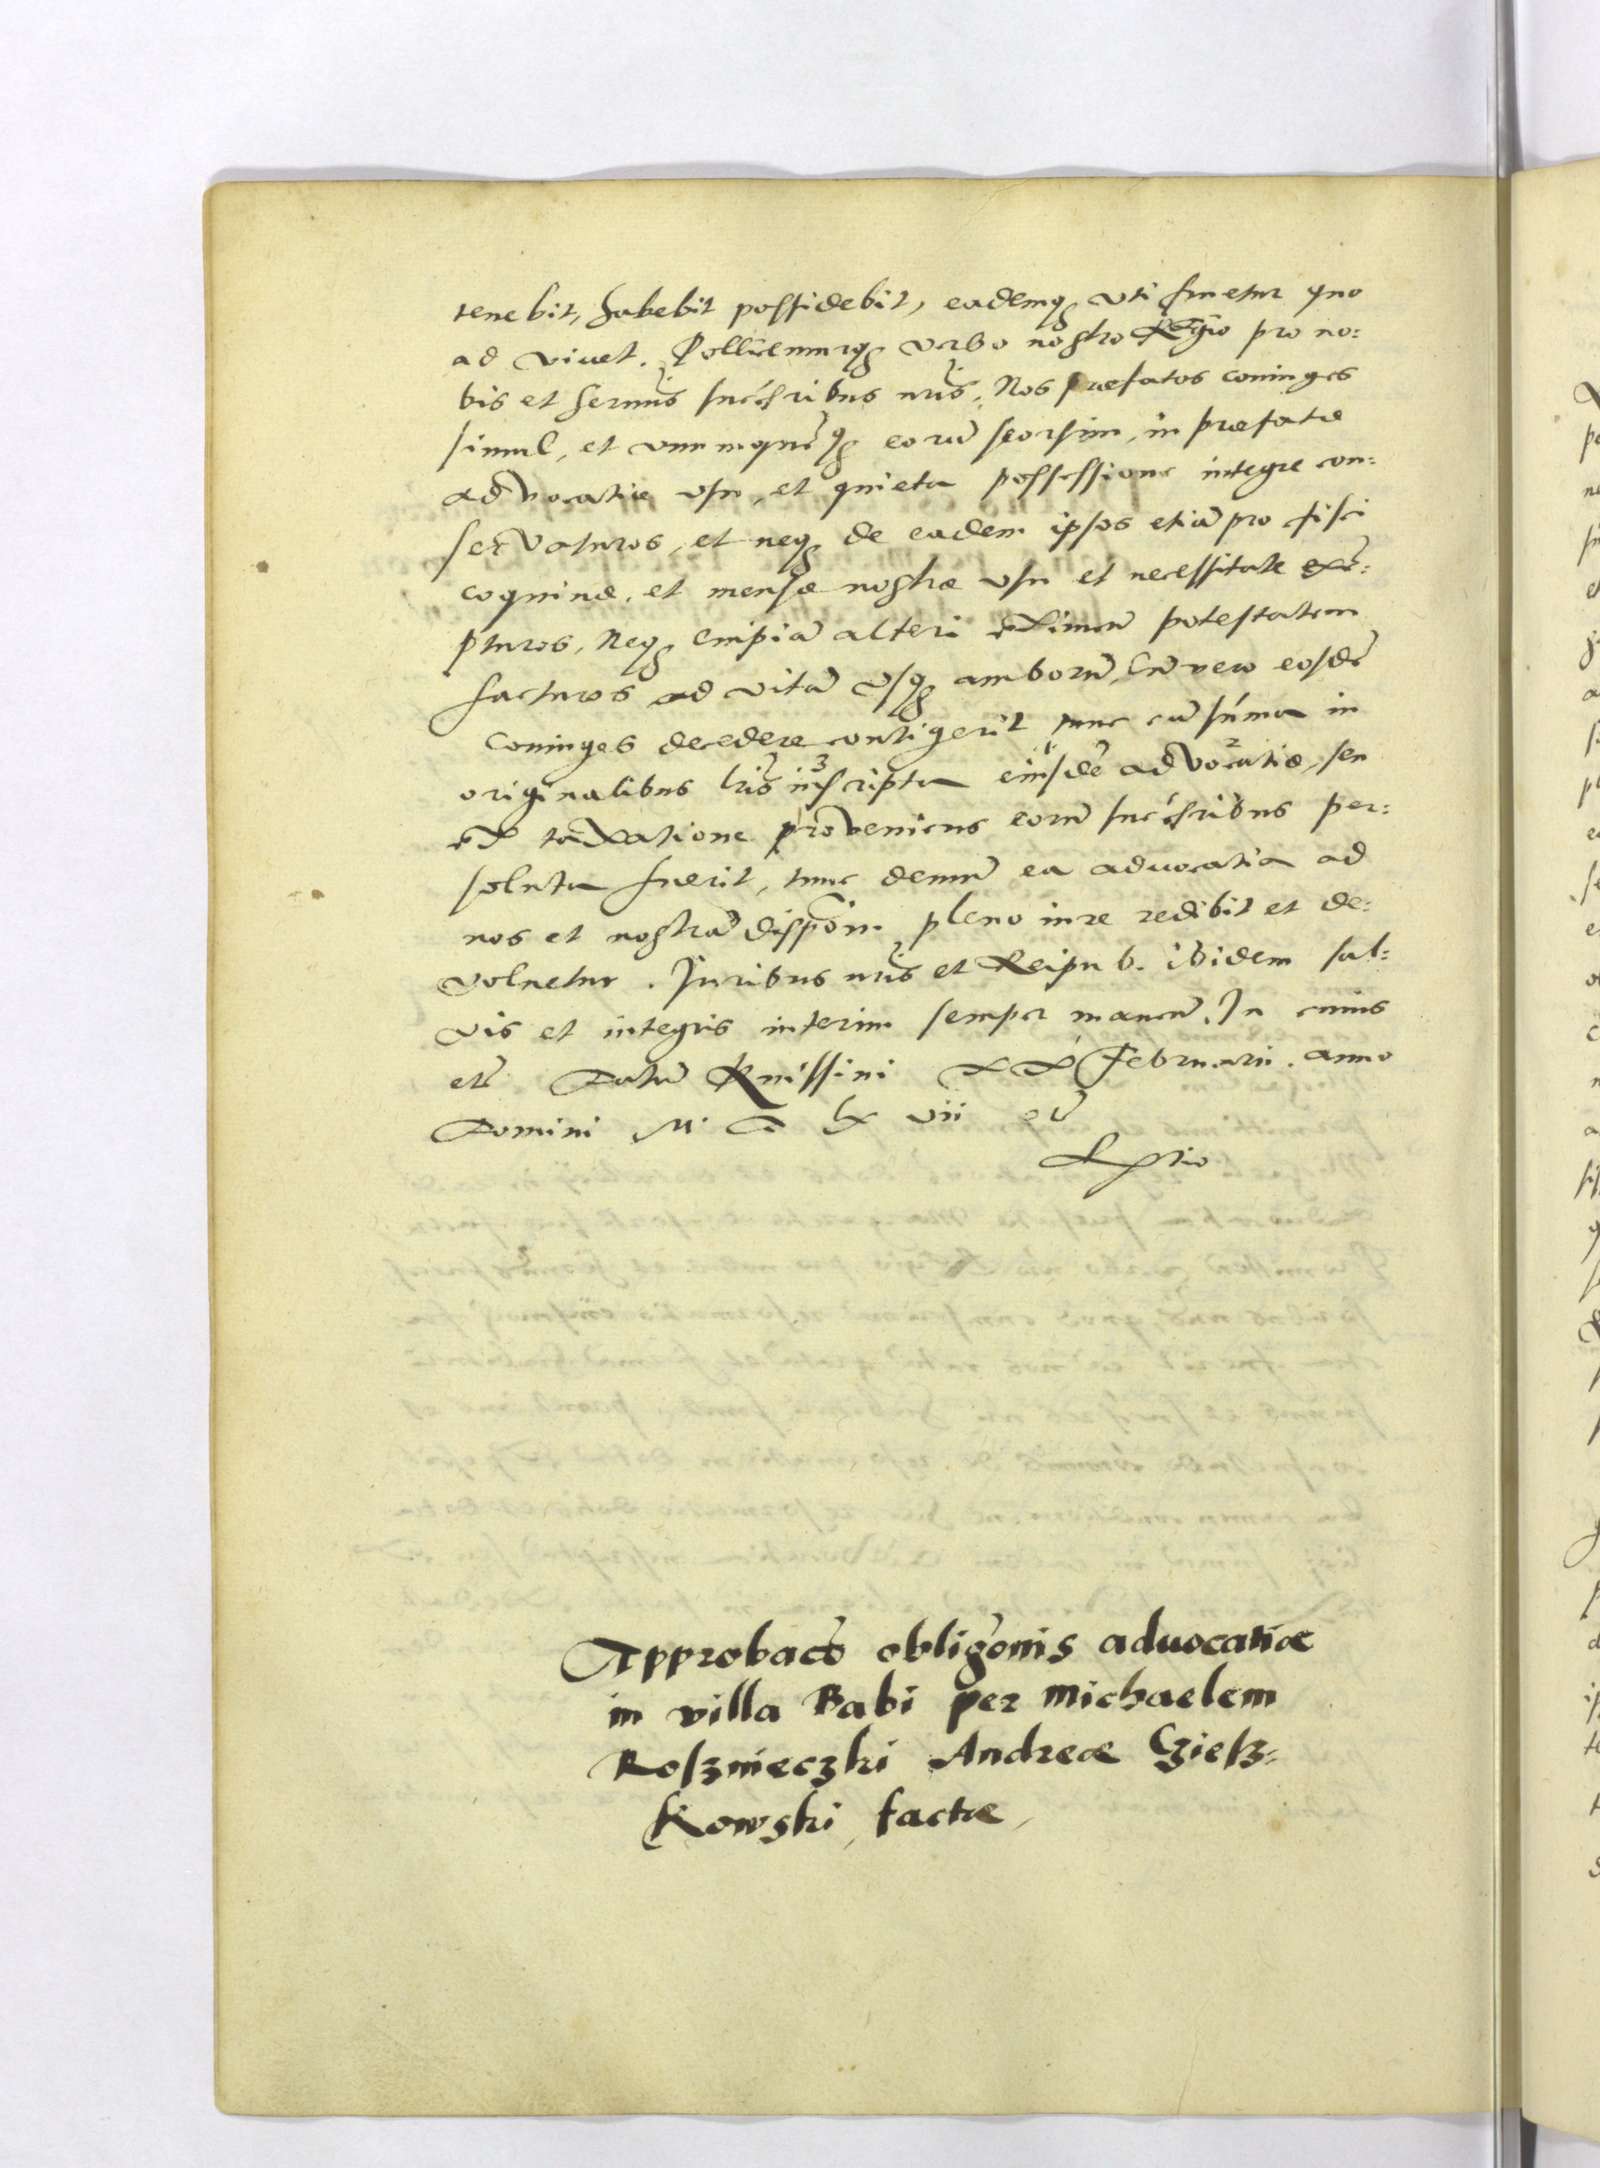 tenebit, habebit possidebit, eademq3 uti fruetur quo
ad vivet. Pollicemurq3 verbo nostro Regio pro no:
bis et sermis succribus nris. Nos præfatos coniuges
simul, et unumquēq3 eorū seorsim, in præfatæ
advocatiæ usu, et quieta possessione integre con:
servaturos, et neq3 de eadem ipsos etiā pro fisci
coquinæ, et mensæ nostræ usu et necessitate exē:
pturos, Neq3 cuipiā alteri eximen̄ potestatem
facturos ad vitā usq3 amborū, Cū vero eosdē
coniuges decedere contigerit tunc cū sūma in
originalibus lris inscripta eiusdē advocatiæ, seu
ex taxatione proveniens eorū succribus per:
soluta fuerit, tunc demū ea advocatia ad
nos et nostrā dispōm pleno iure redibit et de:
volvetur. Juribus nris et Reipub. ibidem sal:
vis et integris interim semper manen̄. In cuius
etc̄ Datū Knissini XX Februarii. anno
Domini M. D lx vii etc̄

Approbacō obligōnis advocatiæ
in villa Babi per Michaelem
Rosznieczki Andreæ Cziesz:
kowski factæ,